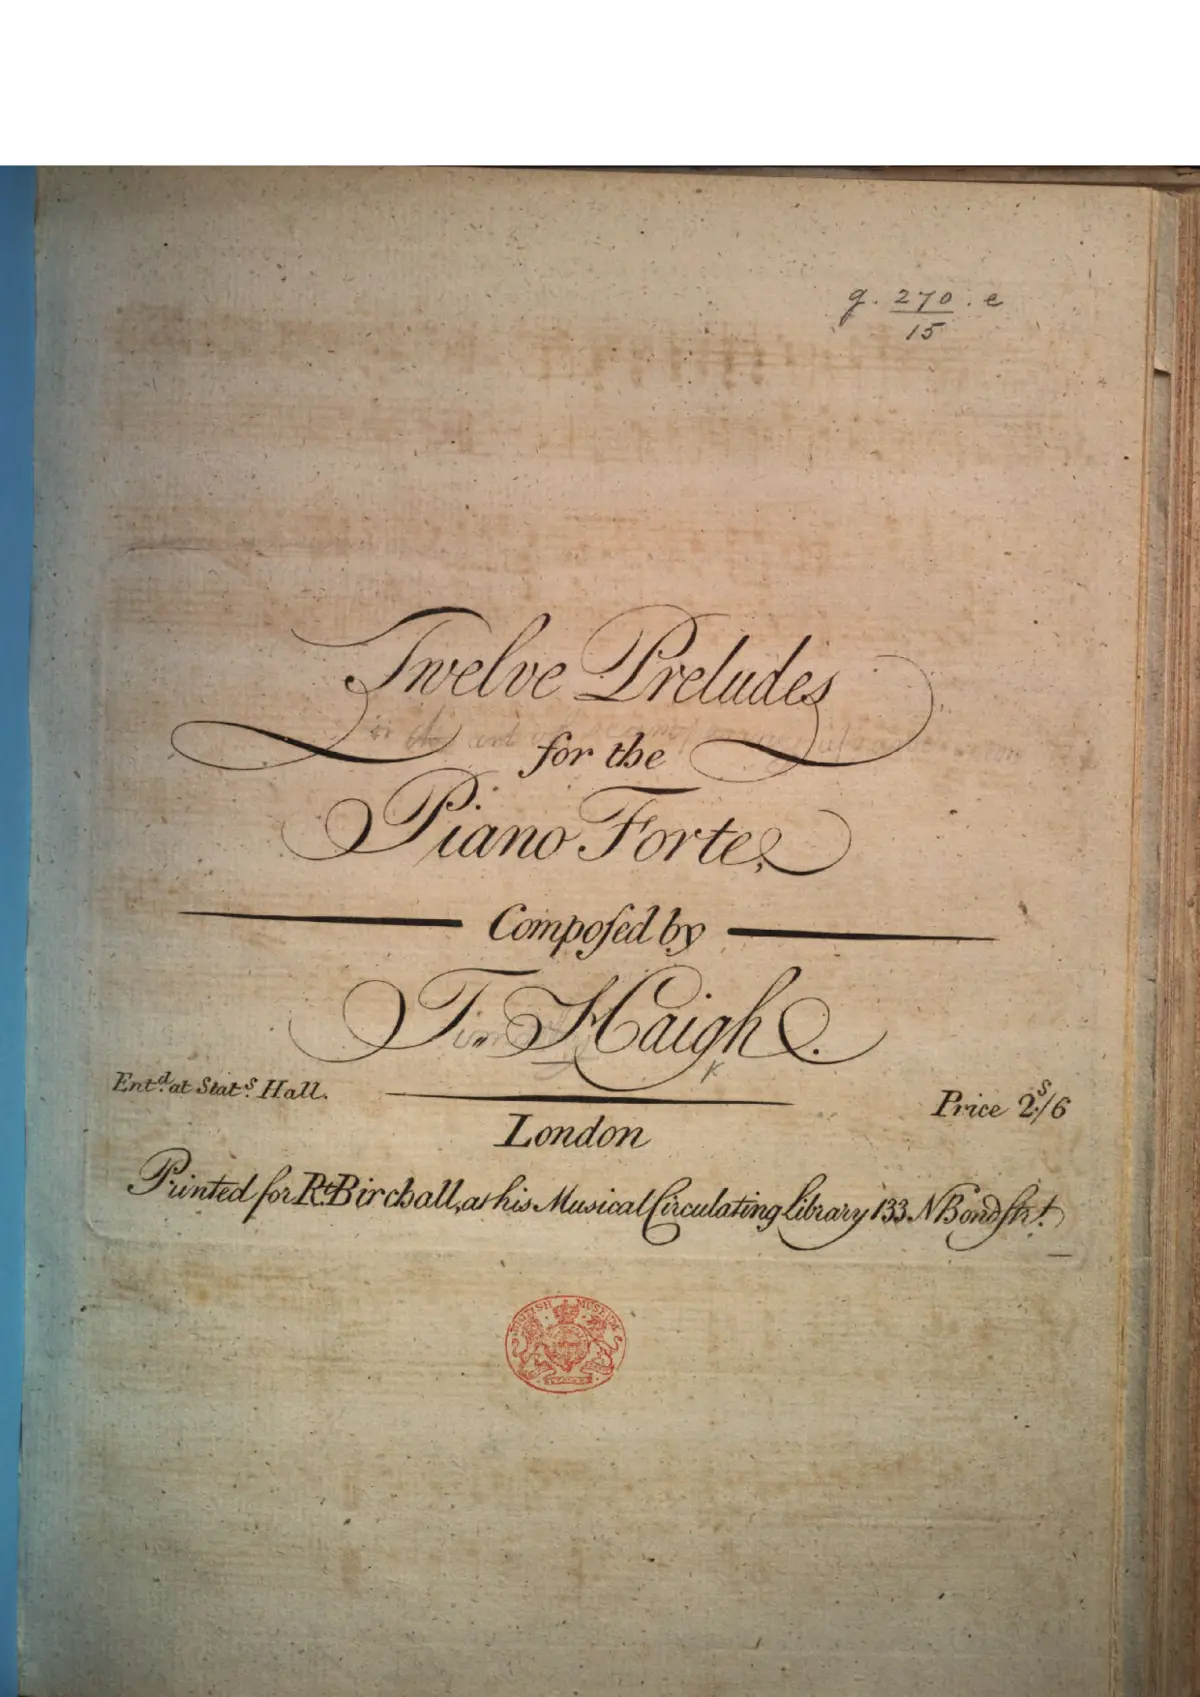 g. 270 . e
15
Twelve Preludes
for the
Piano Forte,
Compoſed by
T. Haigh.
Entd. at Stats. Hall.
Price 2s/6
London
Printed for Rt. Birchall, at his Musical Circulating Library 133 N Bond Strt.
BRITISH MUSEUM